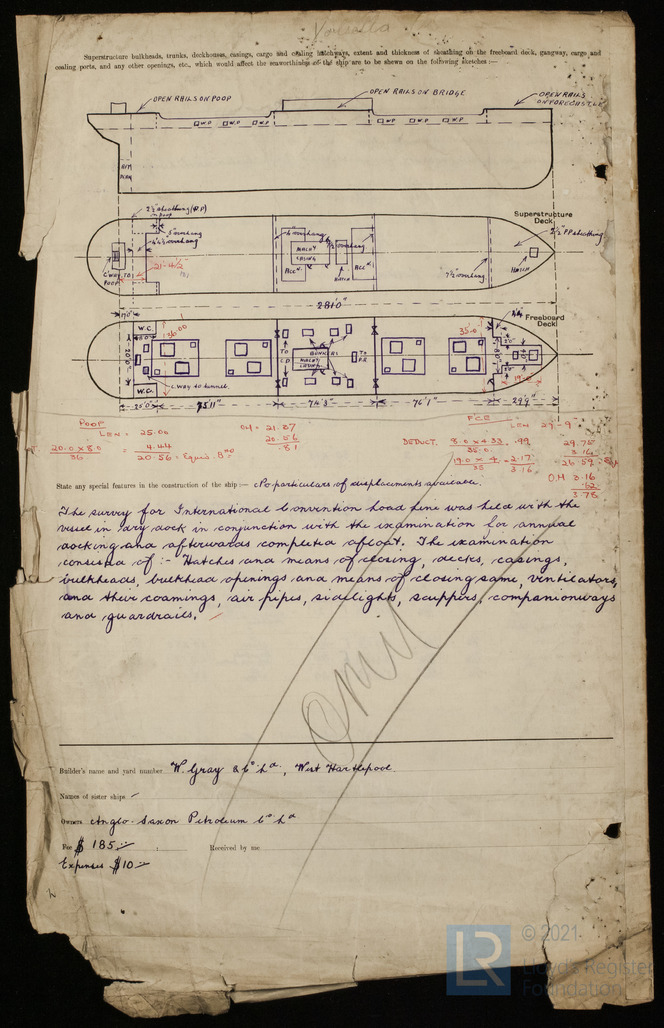 Superstructure bulkheads, trunks, deckhouses, casings, cargo and coaling hatchways, extent and thickness of sheathing on the freeboard deck, gangway, cargo and
coaling ports, and any other openings, etc., which would affect the seaworthiness of the ship are to be shewn on the following sketches :—
OPEN RAILS ON POOP
OPEN RAILS ON BRIDGE
OPEN RAILS
ON FORECASTLE
W.P W.P W.P
W.P W.P W.P
2½" sheathing (P.P)
on poop
Superstructure
Deck
2½" PP sheathing
5" overhang
6" overhang
7½" overhang
MACHY
CASING
ACC
ACC
HATCH
HATCH
C'WAY TO
POOP
21-4½
281'0"
Freeboard
Deck
W.C.
136.00
35.0
20'0"
TO
C.D
BUNKERS
MACHY
CASING
TO
P.R
19'0
W.C.
C.Way to tunnel.
25'0"
75'11"
74'3"
76'1"
29'9"
POOP
LEN = 25.00
20.0 x 8.0
36
= 4.44
20.56 = Equiv. B
OH = 21.37
20.56
.81
FCE
LEN 29-9
DEDUCT. 8.0 x 4.33 = .99
35.0
19.0 x 4 = 2.17
35
3.16
29.75
3.16
26.59
O.H 3.16
.62
3.78
State any special features in the construction of the ship :— No particulars of displacements available.
The survey for International Convention Load Line was held with the
vessel in dry dock in conjunction with the examination for annual
docking and afterwards completed afloat. The examination
consisted of :- Hatches and means of closing, decks, casings,
bulkheads, bulkhead openings and means of closing same, ventilators,
and their coamings, air pipes, sidelights, scuppers, companionways
and guardrails.
Omit
Builder's name and yard number W. Gray & Co. Ltd., West Hartlepool.
Names of sister ships
Owners Anglo-Saxon Petroleum Co. Ltd
Fee $ 185
Received by me
Expenses $10
LR
© 2021
Lloyd's Register
Foundation